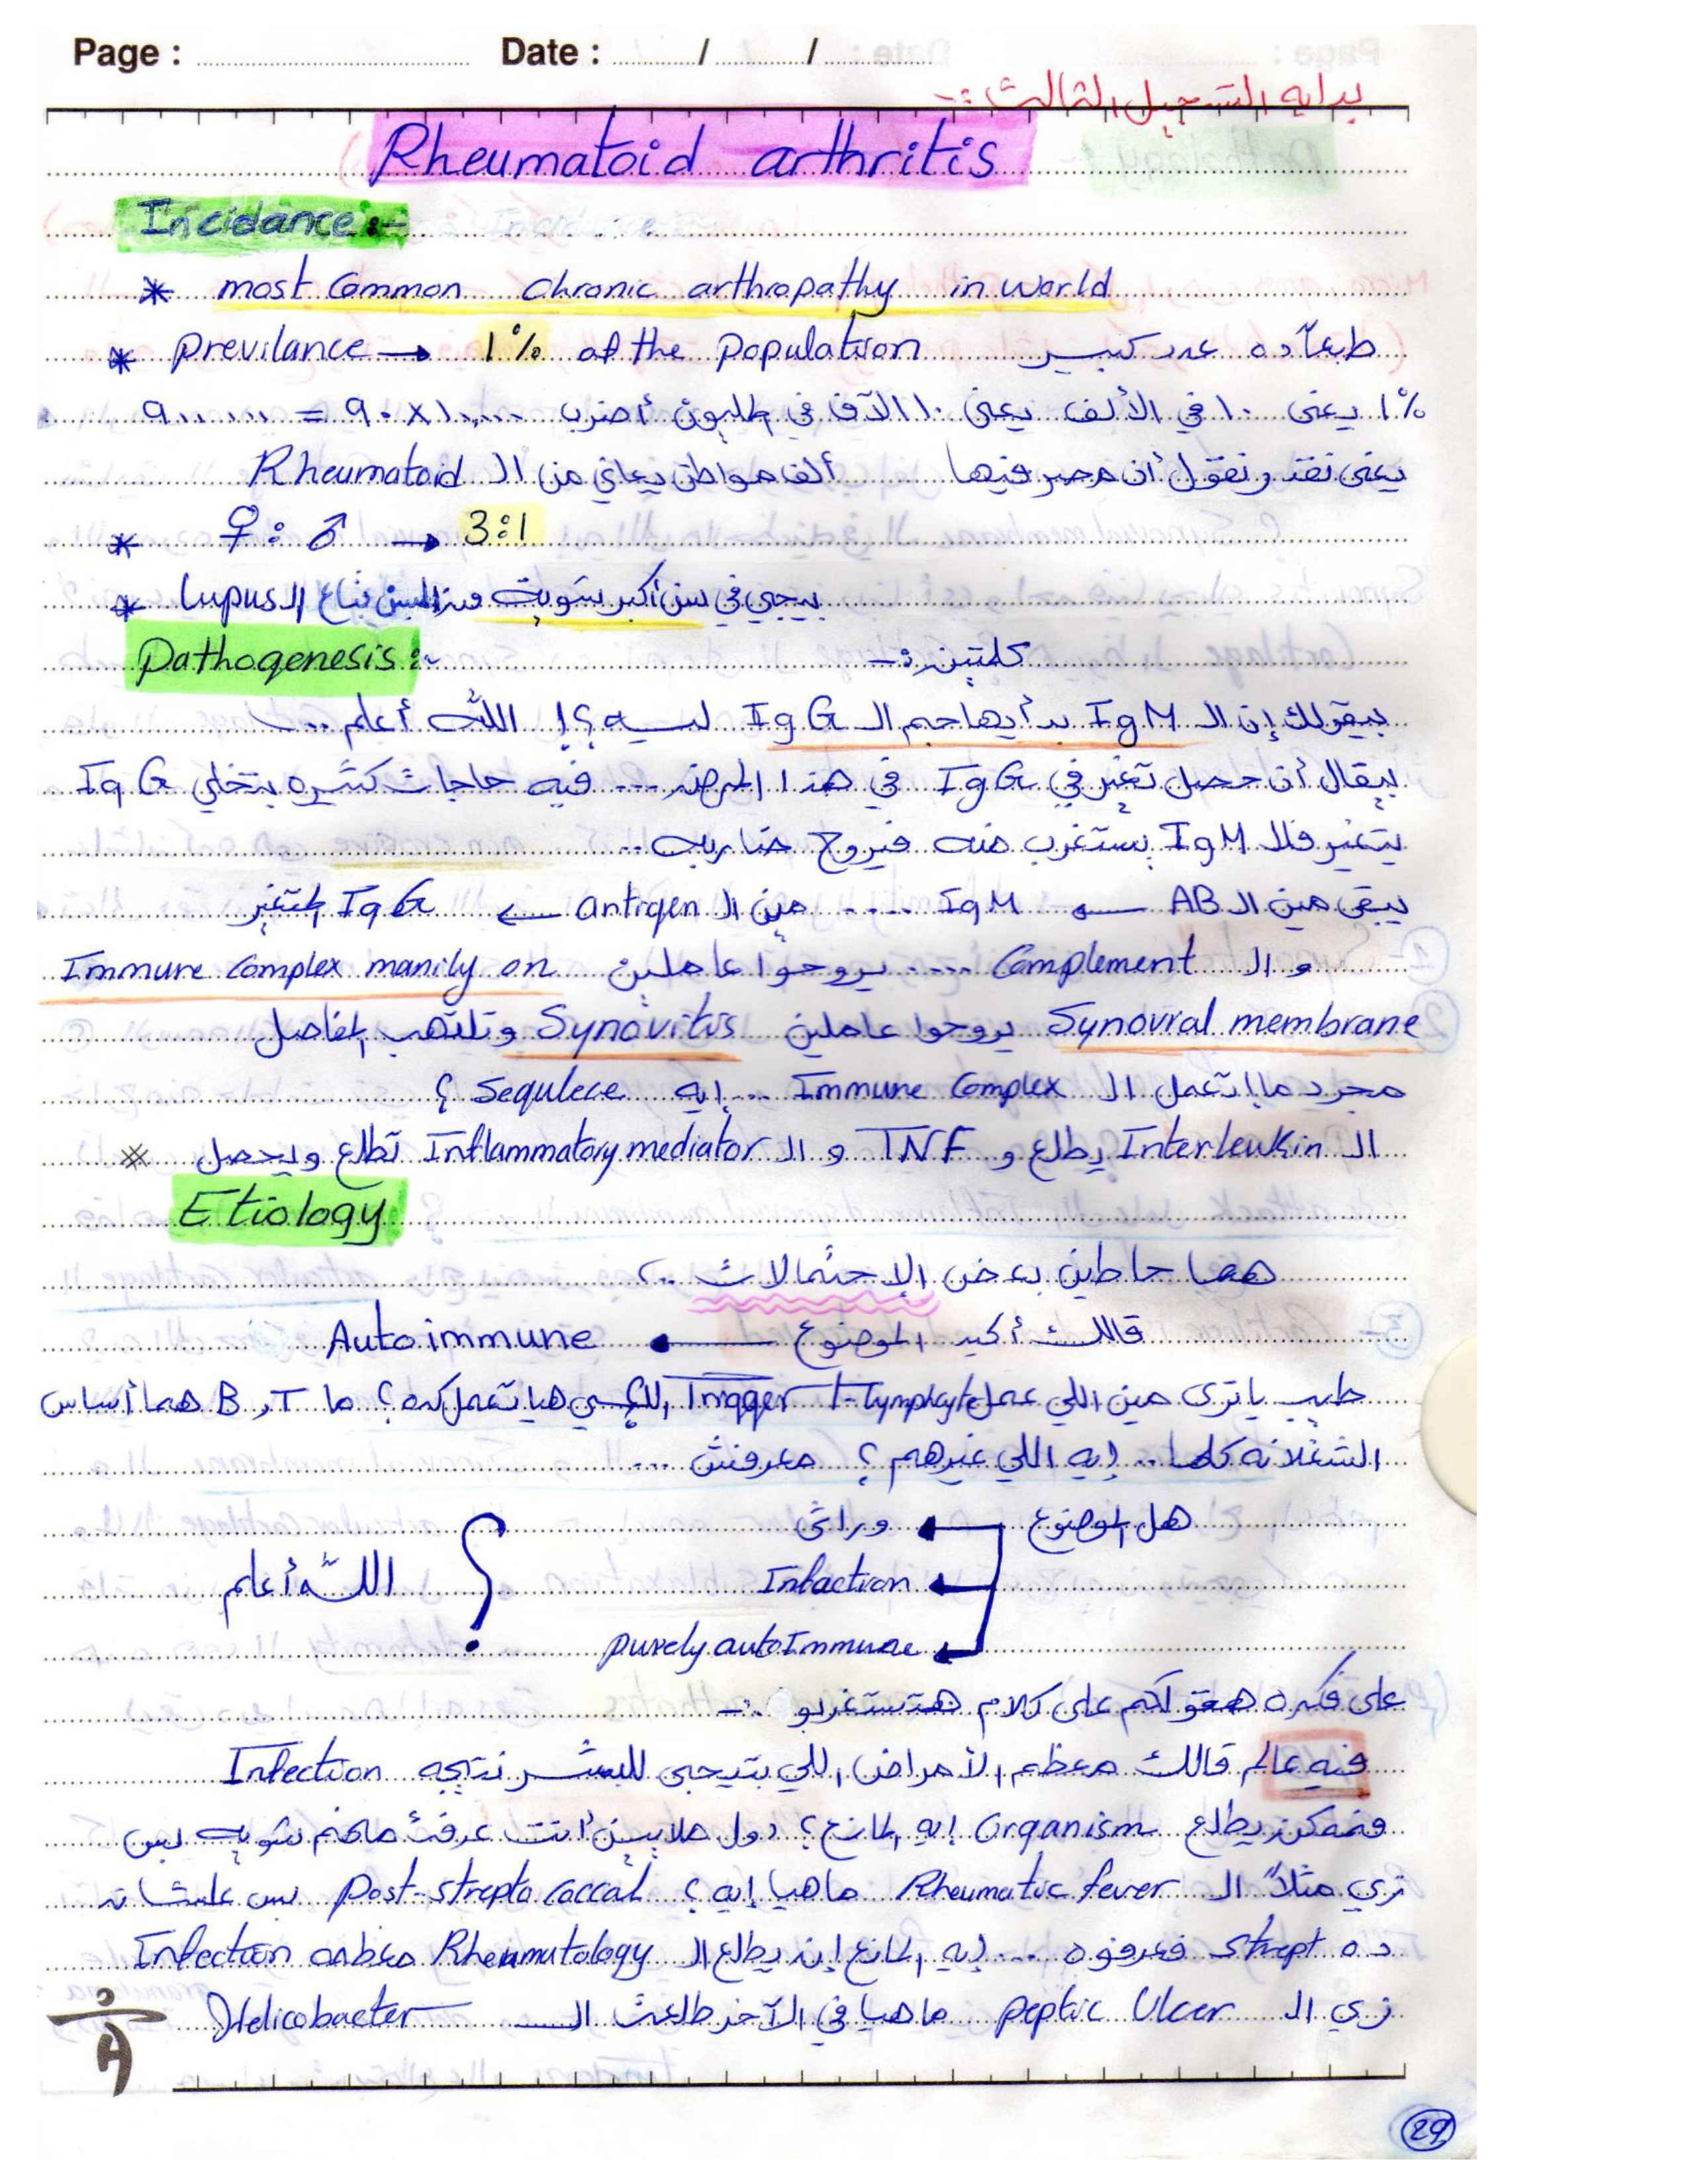 Page : Date : / /
بدايه التسجيل الثالث :-
Rheumatoid arthritis
Incidance :-
* most Common Chronic arthropathy in world
* Previlance → 1% of the population طبعاً ده عدد كبير
1% يعنى ١٠ في الألف يعنى ١٠ الآف في المليون أضرب
يعنى نقدر نقول أن مصر فيها ألف مواطن يعاني من الـ Rheumatoid
* ♀ : ♂ → 3:1
* بيجي في سن أكبر شوية من السن بتاع الـ Lupus
Pathogenesis :- كلمتين :-
بيقولك إن الـ IgM بدأ يهاجم الـ IgG ليه ؟! الله أعلم ...
بيقال أن حصل تغير في IgG في هذا المرض ... فيه حاجات كتيره بتخلي IgG
يتغير فالـ IgM يستغرب منه فيروح ضاربه ..
يبقى مين الـ AB ← IgM .... مين الـ antigen ← IgG المتغير
و الـ Complement .... يروحوا عاملين Immune Complex manily on
Synovial membrane يروحوا عاملين Synovitis وتلتهب المفاصل
مجرد ما إتعمل الـ Immune Complex ... إيه Sequlece ؟
الـ Interleukin يطلع و TNF و الـ Inflammatory mediator تطلع ويحصل ※
Etiology
هما حاطين بعض الإحتمالات ..
قالك أكيد الموضوع ← Autoimmune
طيب يا ترى مين اللي عمل Trigger T-lymphcyte اللي هيا تعمل كده ؟ ما B, T هما أساس
الشغلانه كلها .. إيه اللي غيرهم ؟ معرفش ...
هل الموضوع ← وراثى
Infaction
purely autoImmune
؟ الله أعلم
على فكره هقولكم على كلام هتستغربو :-
فيه عالم قالك معظم الأمراض اللي بتيجي للبشر نتيجه Infection
فممكن يطلع Organism إيه المانع ؟ دول ملايين أنت عرفت منهم شويه بس
زي مثلاً الـ Rheumatic fever ما هيا إيه ؟ Post-strepto coccal بس علشان
ده strept فعرفوه ... إيه المانع إن يطلع الـ Rheumutology معظمه Infection
زي الـ peptic Ulcer ما هيا في الآخر طلعت الـ Helicobacter
29